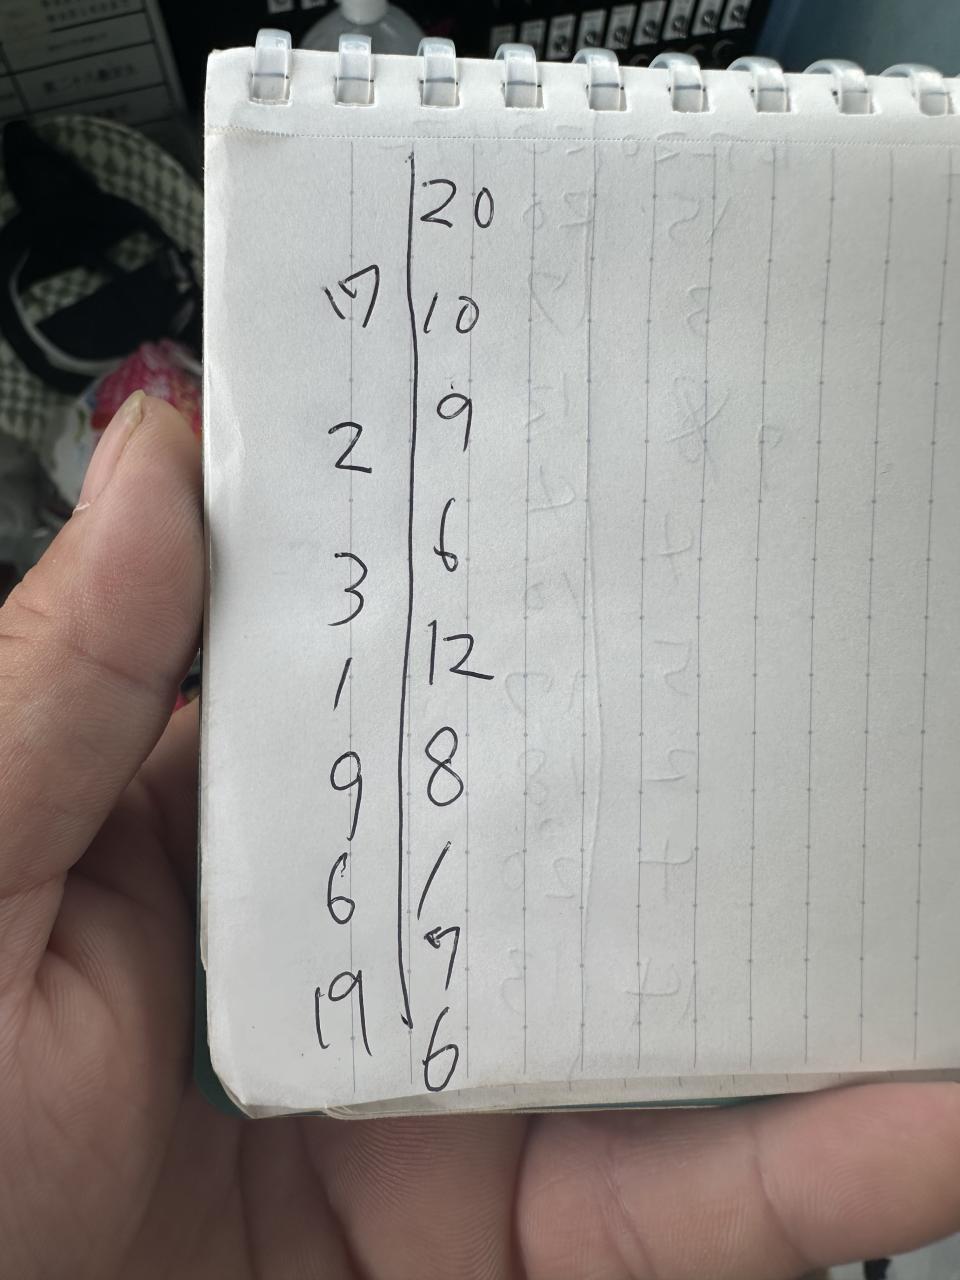 20
17 10
9
2
6
3
12
1
8
9
1
6
7
19
6